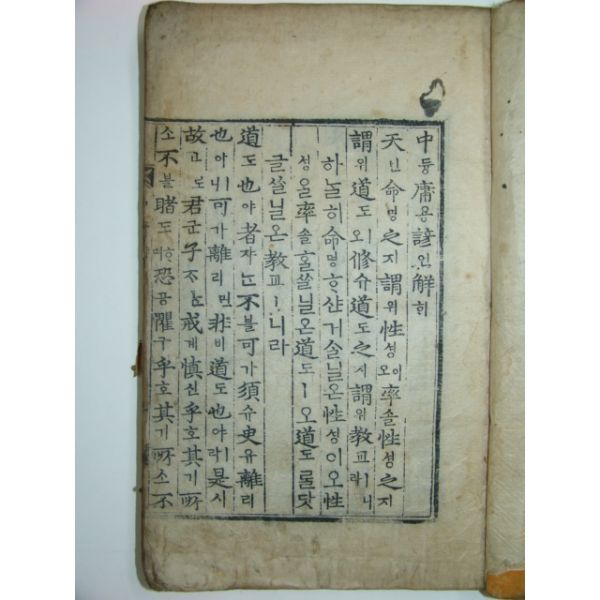 中듕庸용諺언解ᄒᆡ
天텬命명之지謂위性셩이오率솔性셩之지
謂위道도ㅣ오修슈道도之지謂위教교ㅣ니라
하ᄂᆞᆯ히命명ᄒᆞ샨거ᄉᆞᆯ닐온性셩이오性
셩을率솔ᄒᆞᆯᄉᆞᆯ닐온道도ㅣ오道도ᄅᆞᆯ닷
글ᄉᆞᆯ닐온教교ㅣ니라
道도也야者쟈ᄂᆞᆫ不블可가須슈臾유離리
也야ㅣ니可가離리면非비道도也야ㅣ라是시
故고로君군子ᄌᆞᄂᆞᆫ戒계慎신乎호其기所
소不블睹도ᄒᆞ며恐공懼구乎호其기所소不